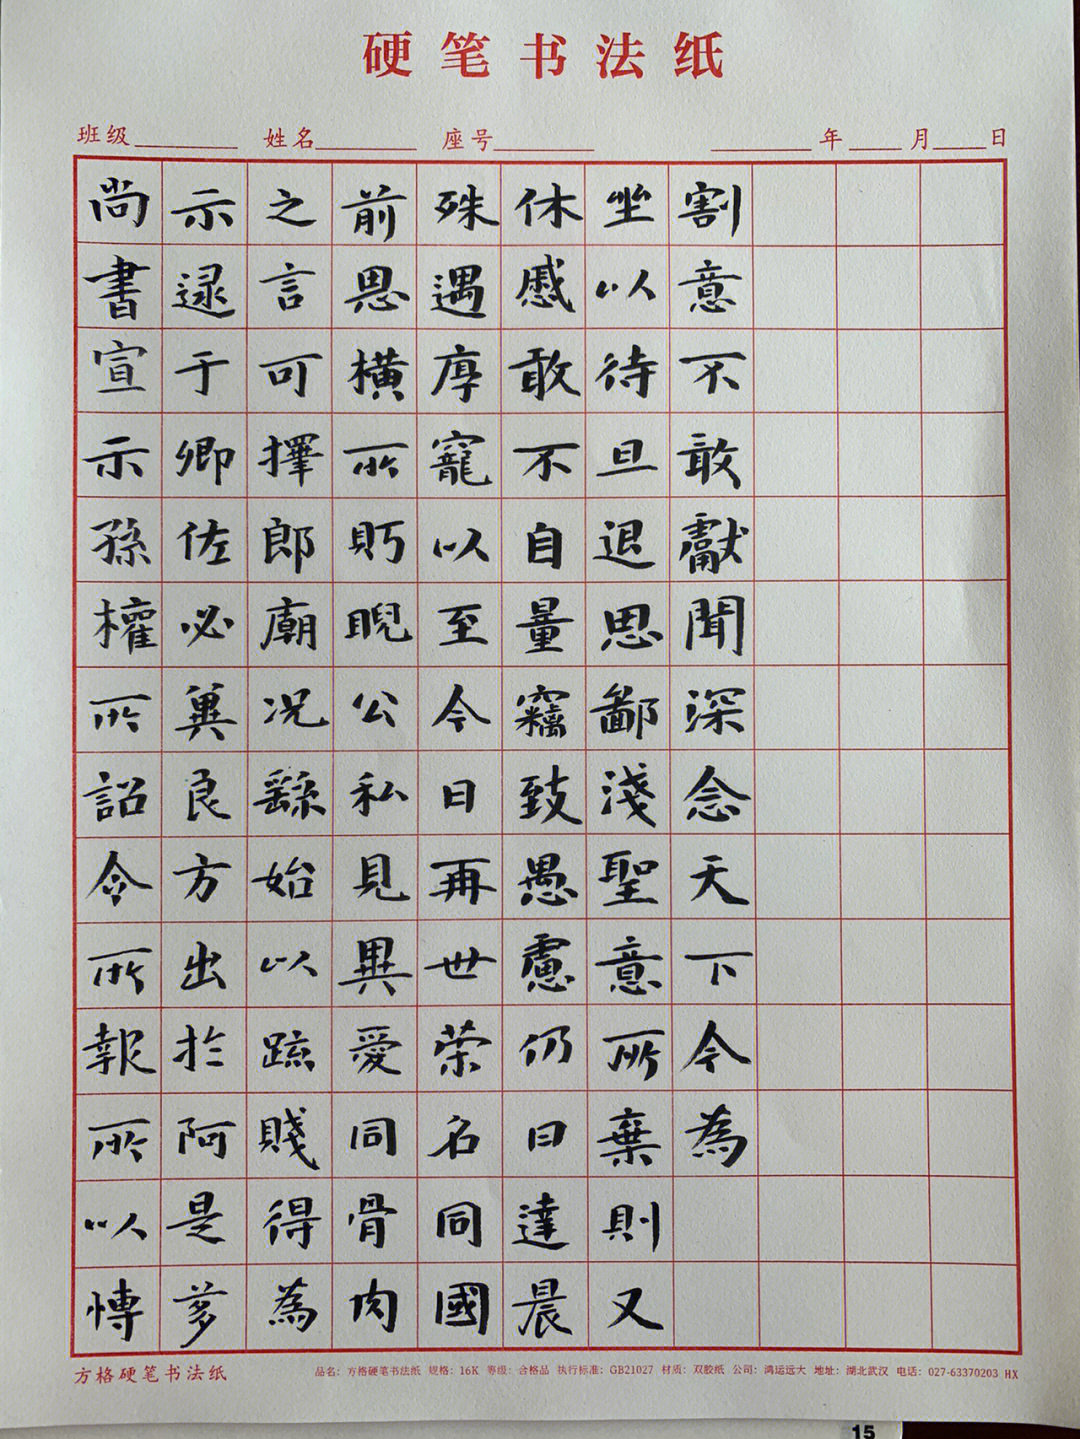 硬笔书法纸
班级 姓名 座号 年 月 日
尚書宣示孫權所詔令所報所以博
示逮于卿佐必冀良方出於阿是芻
之言可擇郎廟况繇始以疏賤得為
前恩横所眄睨公私見異愛同骨肉
殊遇厚寵以至今日再世荣名同國
休慼敢不自量竊致愚慮仍日達晨
坐以待旦退思鄙淺聖意所棄則又
割意不敢獻聞深念天下今為
方格硬笔书法纸 品名：方格硬笔书法纸 规格：16K 等级：合格品 执行标准：GB21027 材质：双胶纸 公司：鸿运远大 地址：湖北武汉 电话：027-63370203 HX
15